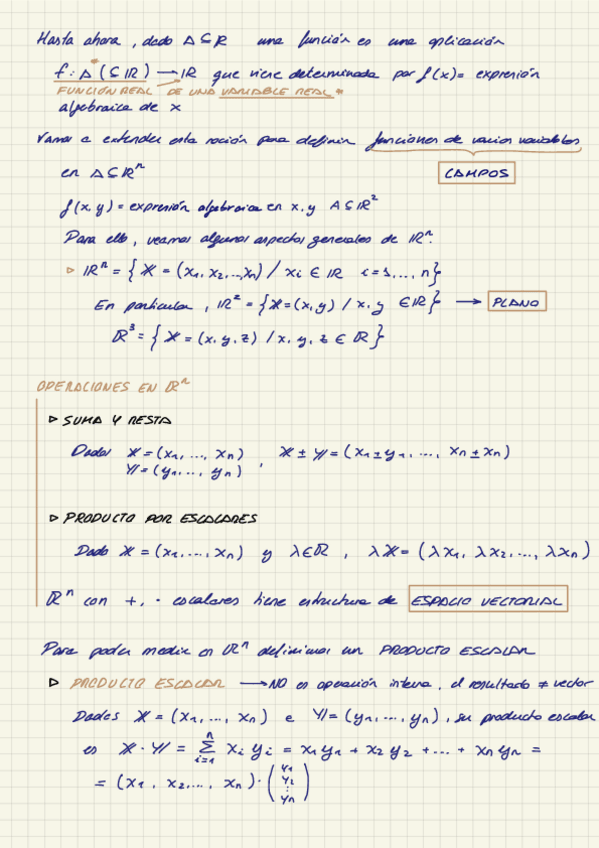 Hasta ahora, dado Δ ⊆ ℝ una función es una aplicación
f: Δ* (⊆ ℝ) → ℝ que viene determinada por f(x) = expresión
FUNCIÓN REAL DE UNA VARIABLE REAL *
algebraica de x
Vamos a extender esta noción para definir funciones de varias variables
en Δ ⊆ ℝⁿ CAMPOS
f(x,y) = expresión algebraica en x, y Δ ⊆ ℝ²
Para ello, veamos algunos aspectos generales de ℝⁿ.
▷ ℝⁿ = { 𝕏 = (x₁, x₂, ..., xₙ) / xᵢ ∈ ℝ i = 1, ..., n }
En particular, ℝ² = { 𝕏 = (x, y) / x, y ∈ ℝ } → PLANO
ℝ³ = { 𝕏 = (x, y, z) / x, y, z ∈ ℝ }
OPERACIONES EN ℝⁿ
▷ SUMA Y RESTA
Dados 𝕏 = (x₁, ..., xₙ), 𝕏 ± 𝕐 = (x₁ ± y₁, ..., xₙ ± xₙ)
𝕐 = (y₁, ..., yₙ)
▷ PRODUCTO POR ESCALARES
Dado 𝕏 = (x₁, ..., xₙ) y λ ∈ ℝ, λ𝕏 = (λx₁, λx₂, ..., λxₙ)
ℝⁿ con +, · escalares tiene estructura de ESPACIO VECTORIAL
Para poder medir en ℝⁿ definimos un PRODUCTO ESCALAR
▷ PRODUCTO ESCALAR → NO es operación interna, el resultado ≠ vector
Dados 𝕏 = (x₁, ..., xₙ) e 𝕐 = (y₁, ..., yₙ), su producto escalar
es 𝕏 · 𝕐 = ∑ᵢ₌₁ⁿ xᵢ yᵢ = x₁y₁ + x₂y₂ + ... + xₙyₙ =
= (x₁, x₂, ..., xₙ) · (y₁ y₂ ⋮ yₙ)